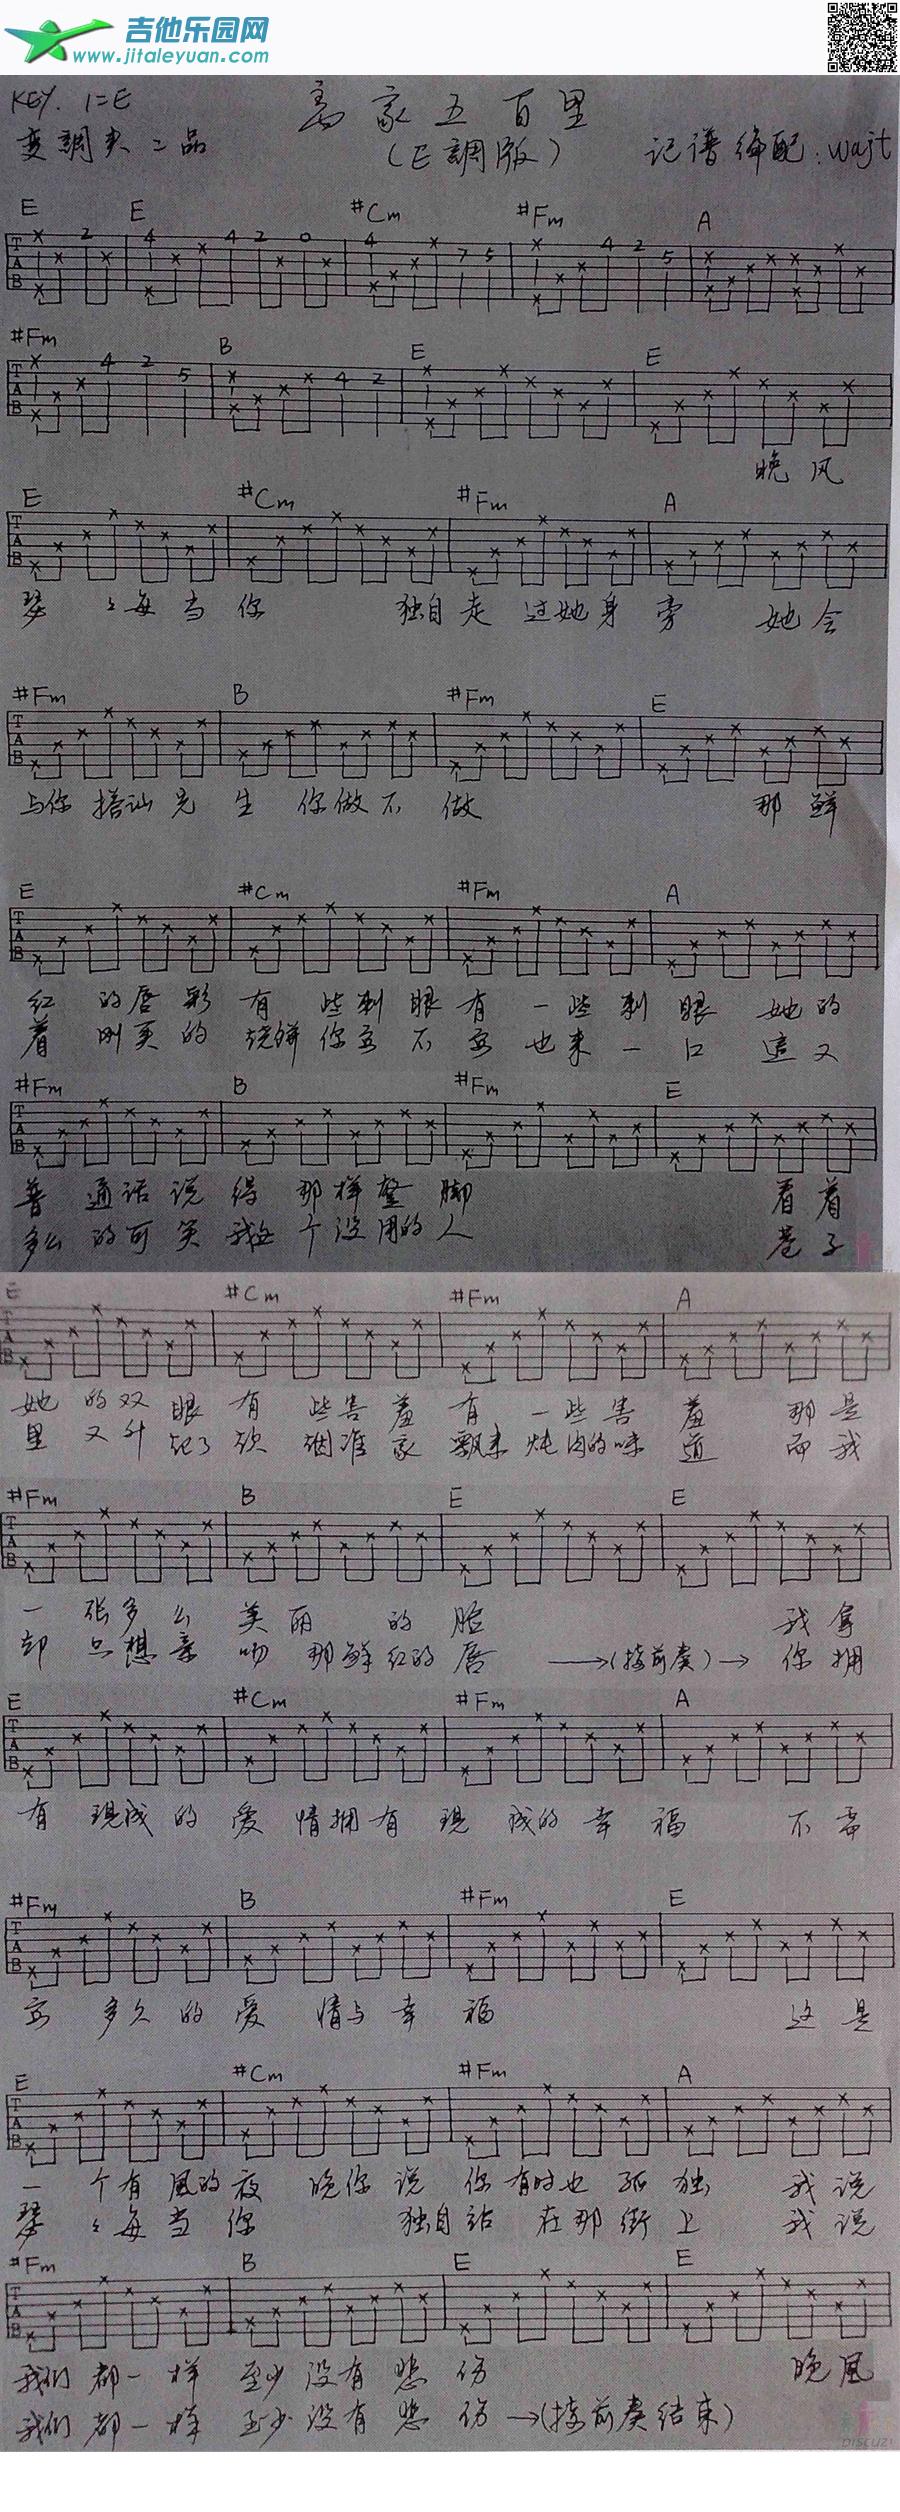 吉他乐园网
www.jitaleyuan.com
KEY. 1=E
离家五百里
变調夹二品
(E調版)
记谱编配:wajt
E E #Cm #Fm A
#Fm B E E
晚风
E #Cm #Fm A
琴 每当你 独自走过她身旁 她会
#Fm B #Fm E
与你搭讪先生你做不做 那鲜
E #Cm #Fm A
红的唇彩有些刺眼有一些刺眼 她的
着刚买的烧饼你要不要也来一口 這又
#Fm B #Fm E
普通话说得那样蹩脚 看着
多么的可笑我这个没用的人 巷子
E #Cm #Fm A
她的双眼有些害羞有一些害羞 那是
里又升起了炊烟谁家飘来炖肉的味道 而我
#Fm B E E
一张多么美丽的脸 我拿
却只想亲吻那鲜红的唇 →(接前奏)→ 你拥
E #Cm #Fm A
有现成的爱情拥有现成的幸福 不需
#Fm B #Fm E
要多久的爱情与幸福 这是
E #Cm #Fm A
一个有風的夜晚你说你有时也孤独 我说
琴 每当你 独自站在那街上 我说
#Fm B E E
我们都一样至少没有悲伤 晚風
我们都一样至少没有悲伤→(接前奏结束)
DISCUZ!